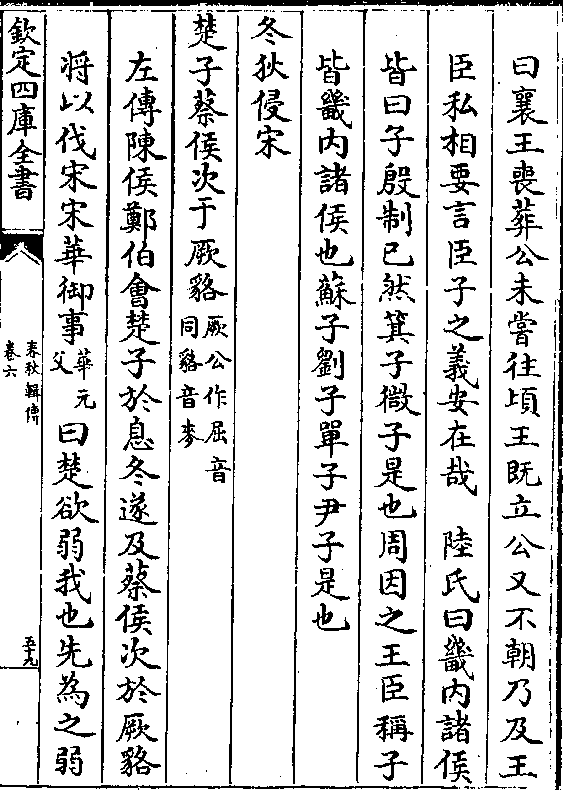 曰襄王喪葬公未嘗往頃王既立公又不朝乃及王
臣私相要言臣子之義安在哉　陸氏曰畿内諸侯
皆曰子殷制已然箕子微子是也周因之王臣稱子
皆畿内諸侯也蘇子劉子單子尹子是也
冬狄侵宋
楚子蔡侯次于厥貉厥公作屈音同貉音麥
左傳陳侯鄭伯會楚子於息冬遂及蔡侯次於厥貉
將以伐宋宋華御事華元父曰楚欲弱我也先為之弱
欽定四庫全書
春秋輯傳
卷六
五十九